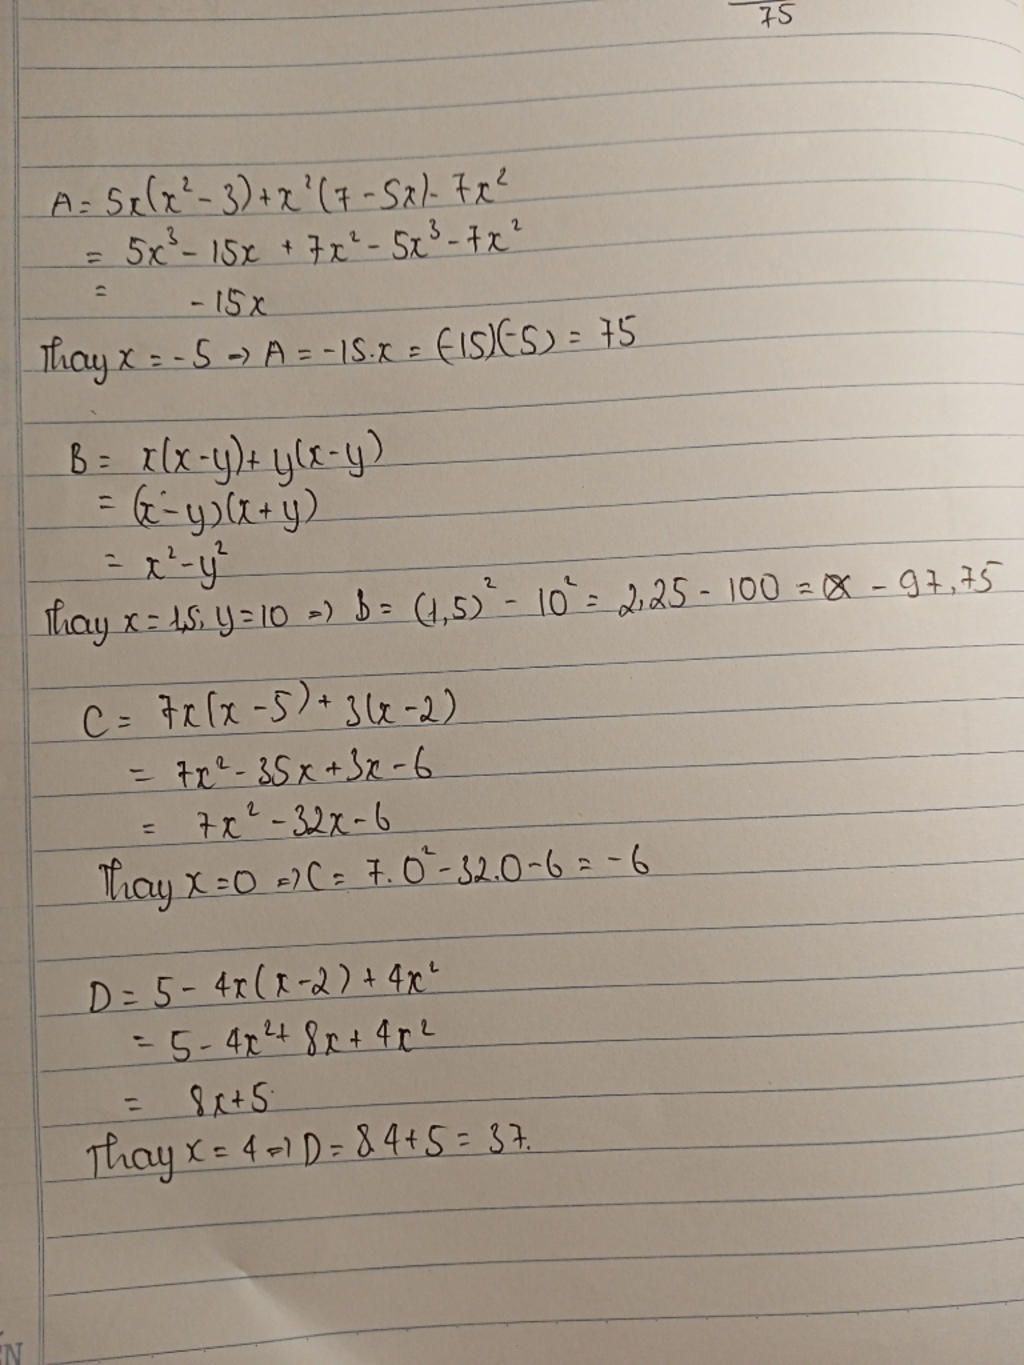 75
A = 5x(x² - 3) + x²(7 - 5x) - 7x²
= 5x³ - 15x + 7x² - 5x³ - 7x²
= -15x
Thay x = -5 => A = -15.x = (-15)(-5) = 75
B = x(x-y) + y(x-y)
= (x-y)(x+y)
= x² - y²
Thay x = 1,5; y = 10 => B = (1,5)² - 10² = 2,25 - 100 = - 97,75
C = 7x(x - 5) + 3(x - 2)
= 7x² - 35x + 3x - 6
= 7x² - 32x - 6
Thay x = 0 => C = 7.0² - 32.0 - 6 = -6
D = 5 - 4x(x - 2) + 4x²
= 5 - 4x² + 8x + 4x²
= 8x + 5
Thay x = 4 => D = 8.4 + 5 = 37.